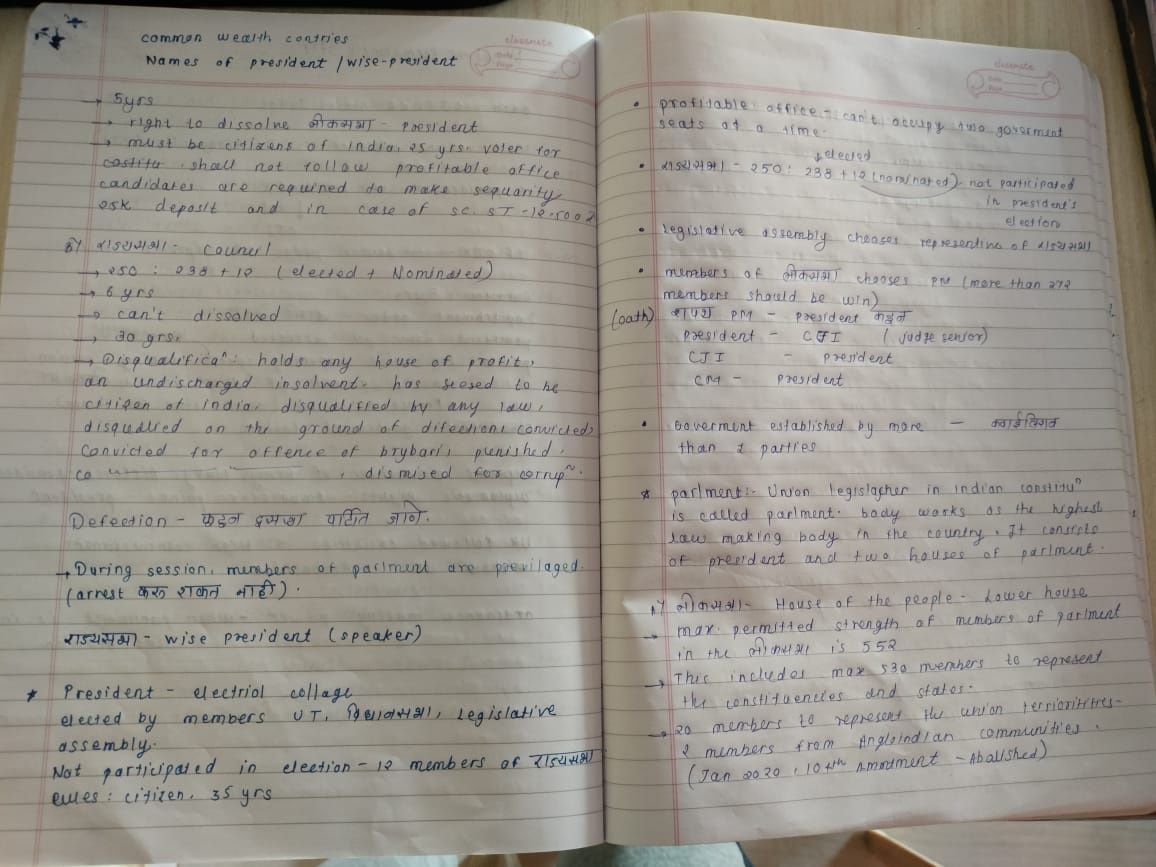 common wealth contries
Names of president / wise-president
classmate
Date
Page
→ 5yrs
→ right to dissolve लोकसभा - president
→ must be citizens of India, 25 yrs. voter for
costitu. shall not follow profitable office
candidates are required to make sequarity
25k deposit and in case of sc. ST - 12.500
ब) राज्यसभा - council
→ 250 : 238 + 12 (elected + Nominated)
→ 6 yrs
→ can't dissolved
→ 30 yrs.
→ Disqualificaⁿ : holds any house of profit,
an undischarged insolvent. has seesed to be
citizen of India, disqualified by any law,
disqualied on the ground of difection, convicted,
convicted for offence of brybari, punished.
co , dismised for corrup~.
Defection - दुसऱ्या पार्टीत जाणे.
→ During session, members of parlment are previlaged.
(arrest करू शकत नाही).
राज्यसभा - wise president (speaker)
* President - electriol collage
elected by members UT, विधानसभा, Legislative
assembly.
Not participated in election - 12 members of राज्यसभा
eules : citizen, 35 yrs
classmate
Date
Page
• profitable office - can't occupy two goverment
seats at a time.
elected
• राज्यसभा - 250 : 238 + 12 (nominated). not participated
in president's
election
• Legislative assembly chooses representive of राज्यसभा
• members of लोकसभा chooses PM (more than 272
members should be win)
(oath) शपथ PM - president कडून
president - CJI (judge senior)
CJI - president
CM - president
• Goverment established by more -
than 2 parties
* parlment :- Union legislacher in indian constituⁿ
is called parlment. body works as the highest
law making body in the country. It consists
of president and two houses of parlment.
लोकसभा - House of the people - Lower house
→ max. permitted strength of members of parlment
in the लोकसभा is 552
→ This includes max 530 members to represent
the constituencies and states.
→ 20 members to represent the union
2 members from AngloIndian communities.
(Jan 2020, 104th Amndment - Abalished)